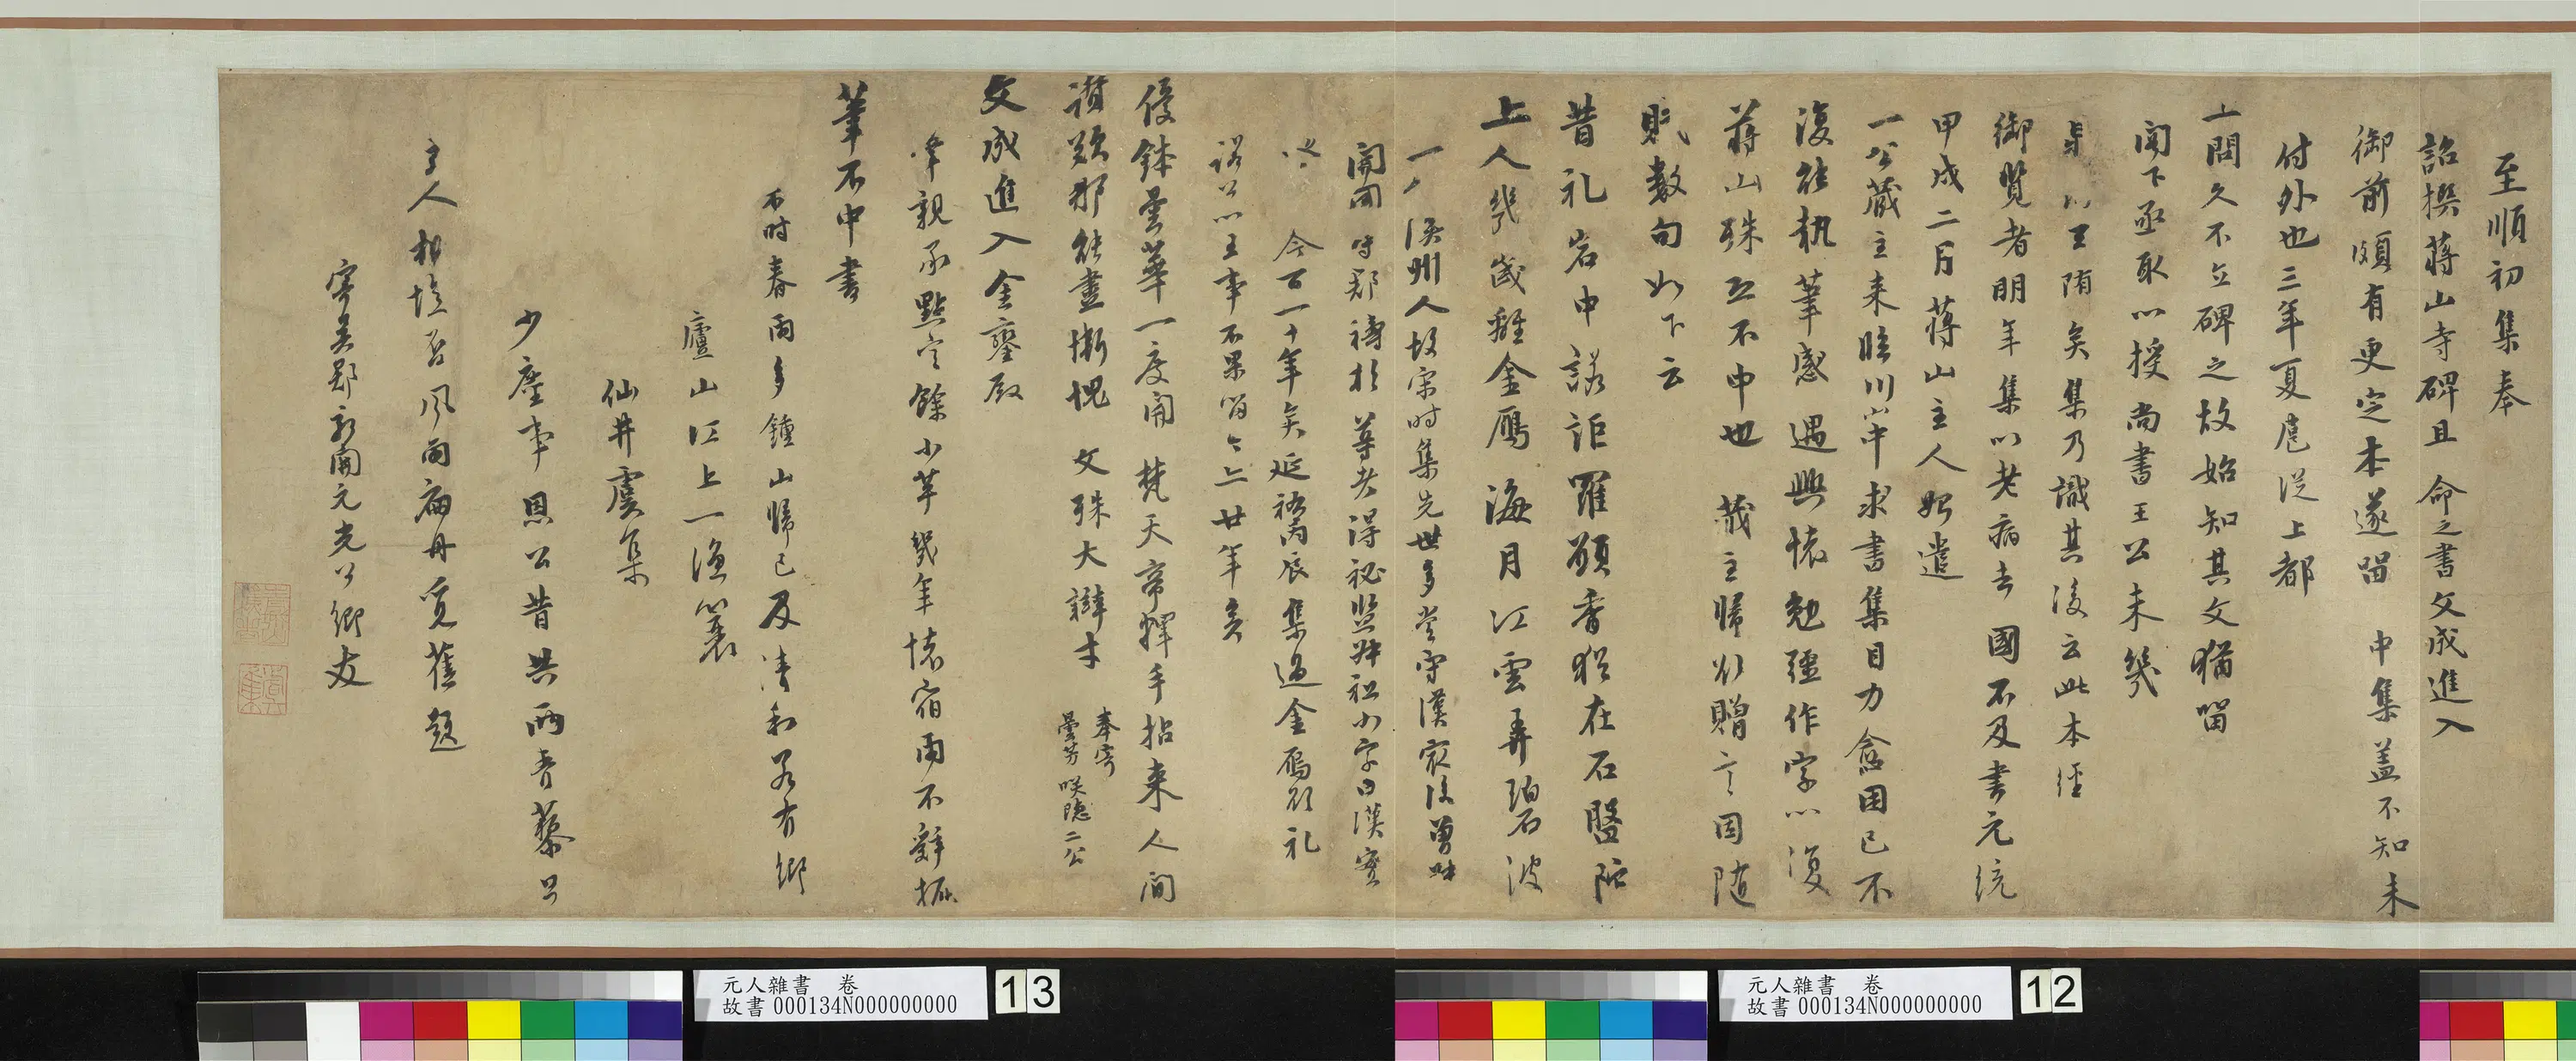 至順初集奉
詔撰蔣山寺碑且命之書文成進入
御前頗有更定本遂留中集盖不知未
付外也三年夏扈從上都
上問久不立碑之故始知其文猶留
閣下亟取以授尚書王公未幾
以王陏矣集乃識其後云此本經
御覽者明年集以老病去國不及書元統
甲戌二月蔣山主人
一公藏主来臨川山中求書集目力愈困已不
復能執筆感遇興懷勉彊作字以復
蔣山殊不中也藏主歸以贈言因随
數句如下云
昔礼岩中諾詎羅願香猶在石盤陀
上人幾歲離金鴈海月江雲弄碧波
漢州人故宋時集先世多嘗守漢家後曾
開閫守郡禱於尊者得祕監叔祖小字曰漢賓
今百一十年矣延祐丙辰集過金鴈欲礼
諾公以王事不果留今亦廿年矣
優鉢曇華一度開梵天帝釋手拈来人間
讃歎那能盡慚愧文殊大辯才
奉寄
曇芳咲隱二公
文成進入金鑾殿
幸親承點定餘小草幾年懷宿雨不辭
筆不中書
不時春雨多鍾山歸已及清和若有鄉
廬山江上一漁蓑
仙井虞集
少塵事恩公昔共兩青藜只
主人相憶否風雨扁舟覓舊題
寄吳郡開元光公鄉友
元人雜書 卷
故書000134N000000000
13
元人雜書 卷
故書000134N000000000
12